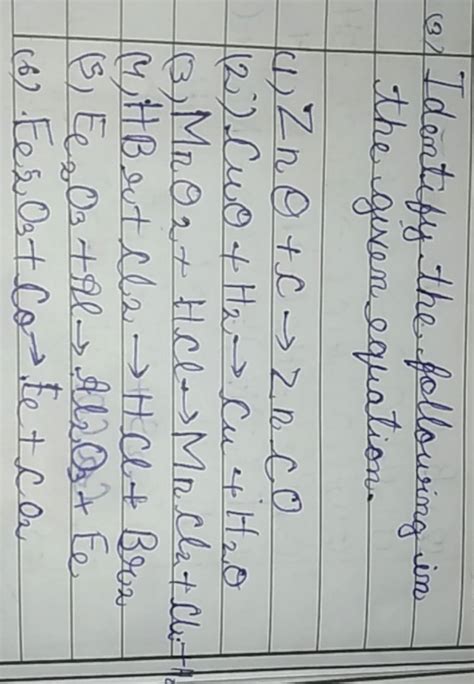 (3) Identify the following in
the given equation.
(1) ZnO + C → ZnCO
(2) CuO + H2 → Cu + H2O
(3) MnO2 + HCl → MnCl2 + Cl2 + H2
(4) HBr + Cl2 → HCl + Br2
(5) Fe2O3 + Al → Al2O3 + Fe
(6) Fe2O3 + Co → Fe + CO2